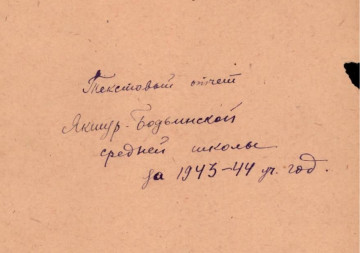 Текстовый отчет
Якшур-Бодьинской
средней школы
за 1943-44 уч. год.